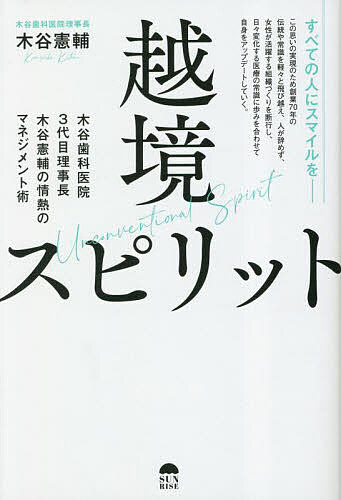 すべての人にスマイルを――
この思いの実現のため創業70年の
伝統や常識を軽々と飛び越え、人が辞めず、
女性が活躍する組織づくりを断行し、
日々変化する医療の常識に歩みを合わせて
自身をアップデートしていく。
木谷歯科医院理事長
木谷憲輔
Kensuke Kitani
越境
スピリット
Unconventional Spirit
木谷歯科医院
3代目理事長
木谷憲輔の情熱の
マネジメント術
SUN
RISE